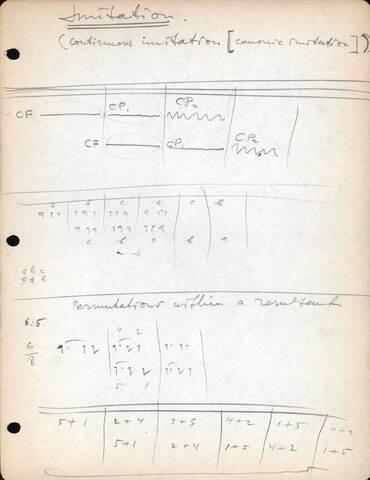 Imitation.
(continuous imitation [canonic imitation])
CF CP₁ CP₂
CF CP₁ CP₂
a b c
c b c b a
a b c
c a b
Permutations within a resultant
6:5
6/8
4 2
5 1
5+1 2+4 3+3 4+2 1+5 4+2
5+1 2+4 1+5 4+2 1+5